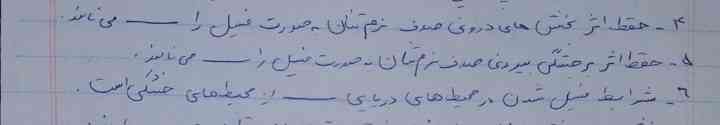 ۴- حفظ اثر بخش های درونی صدف نرم تنان به صورت فسیل را ــــــ می نامند.
۵- حفظ اثر برجستگی بیرونی صدف نرم تنان به صورت فسیل را ــــــ می نامند.
۶- شرایط فسیل شدن در محیط های دریایی ــــــ از محیط های خشکی است.